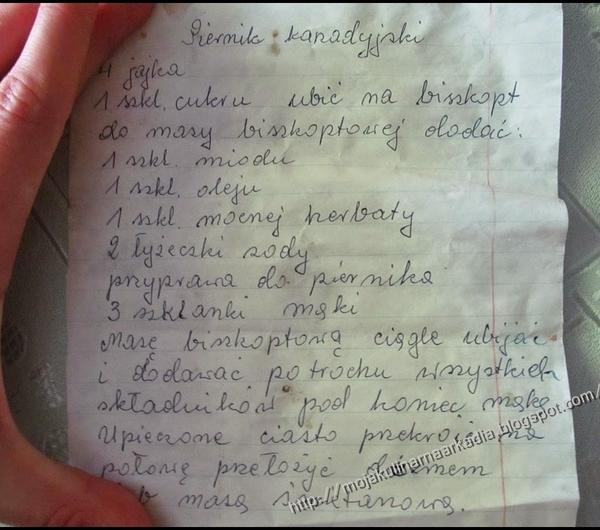 Piernik kanadyjski
4 jajka
1 szkl. cukru ubić na biszkopt
do masy biszkoptowej dodać:
1 szkl. miodu
1 szkl. oleju
1 szkl. mocnej herbaty
2 łyżeczki sody
przyprawa do piernika
3 szklanki mąki
Masę biszkoptową ciągle ubijać
i dodawać potrochu wszystkich
składników pod koniec mąkę
Upieczone ciasto przekroić na
połowę przełożyć dżemem
lub masą śmietanową.
http://mojakulinarnaarkadia.blogspot.com/